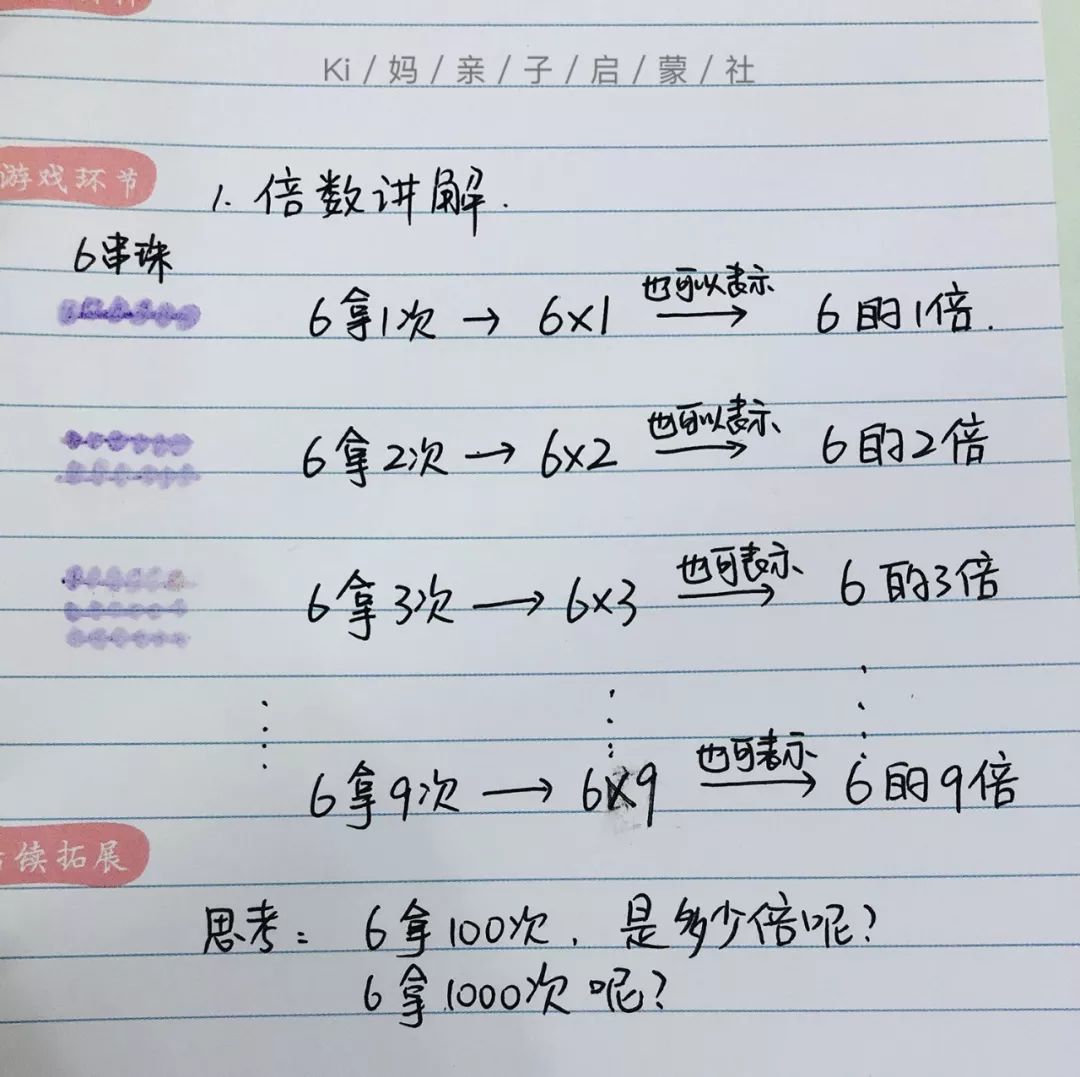 Ki/妈/亲/子/启/蒙/社
游戏环节
1. 倍数讲解.
6串珠
6拿1次 → 6×1 也可以表示 6的1倍.
6拿2次 → 6×2 也可以表示 6的2倍
6拿3次 → 6×3 也可表示 6的3倍
6拿9次 → 6×9 也可表示 6的9倍
续拓展
思考: 6拿100次, 是多少倍呢?
6拿1000次呢?